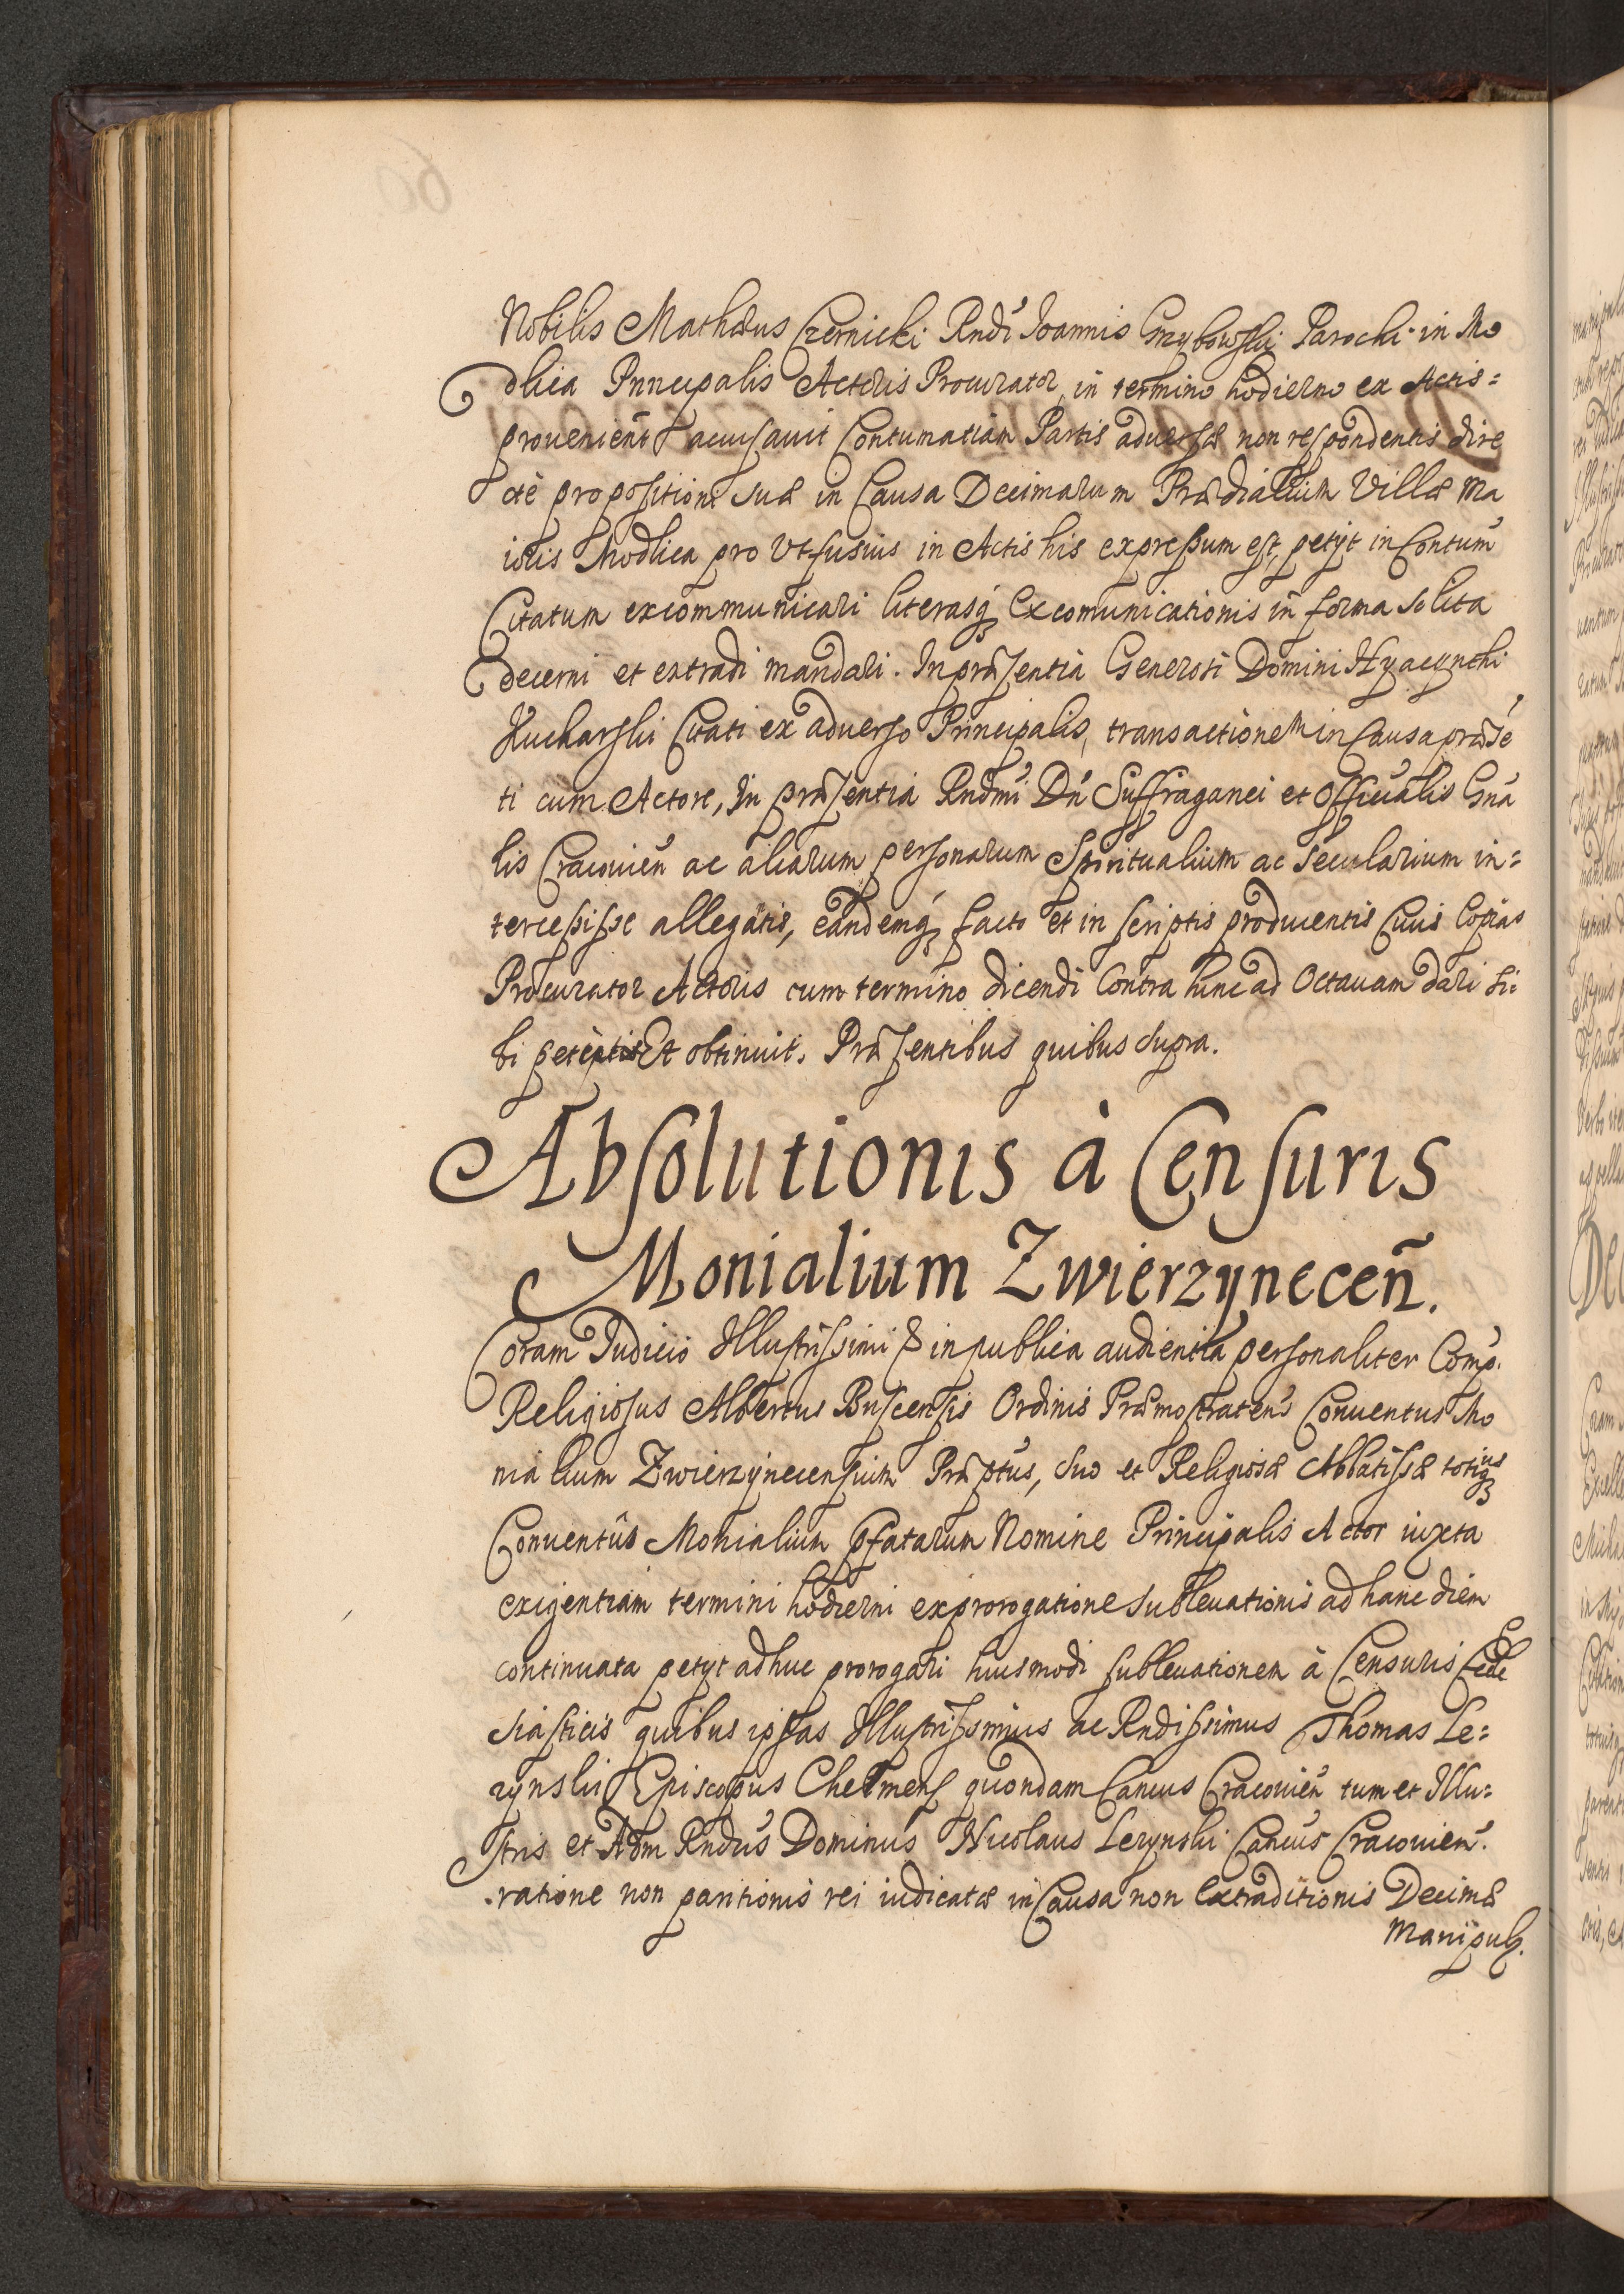 Nobilis Mathæus Czernicki Rndi Joannis Grzybowski Parochi in Mo
dlica Principalis Actoris Procurator, in termino hodierno ex Actis=
proveniente accusavit Contumatiam Partis adversæ non respondentis dire
ctè propositioni suæ in Causa Decimarum Prædialium Villæ Ma
ioris Modlica pro vt fusius in Actis his expressum est, petyt in Contum
Citatum excommunicari literasq́ Excomunicationis in forma solita
decerni et extradi mandari. In præsentia Generosi Domini Hyacynthi
Kucharski Citati ex adverso Principalis, transactionem in Causa præsé
ti cum Actore, In præsentia Rndmi Dñi Suffraganei et Officialis Gnã
lis Cracovieñ ac aliarum personarum Spiritualium ac secularium in=
tercessisse allegatis, eandemq́ facto et in scriptis producentis Cuius Copias
Procurator Actoris cum termino dicendi Contra hinc ad Octavam dari si
bi Et obtinuit. Præsentibus quibus supra.
Absolutionis à Censuris
Monialium Zwierzyneceñ.
Coram Judicio Illustrissimi & in publica audientia personaliter Comp.
Religiosus Albertus Buscensis Ordinis Præmostratens Conventus Mo
nialium Zwierzynecensium Præptus, suo et Religiosæ Abbatissæ totiusq́
Conventûs Monialium pfatarum Nomine Principalis Actor iuxta
exigentiam termini hodierni ex prorogatione sublevationis ad hanc diem
continuata petyt adhuc prorogari huiusmodi sublevationem à Censuris Eccle
siasticis quibus ipsas Illustrissimus ac Rndissimus Thomas Le=
zynski Episcopus Chelmens quondam Cancus Cracovieñ tum et Illu=
stris et Adm Rndus Dominus Nicolaus Lezynski Cancus Cracovieñ.
ratione non paritionis rei iudicatæ in Causa non Extraditionis Decimæ
Manipul.